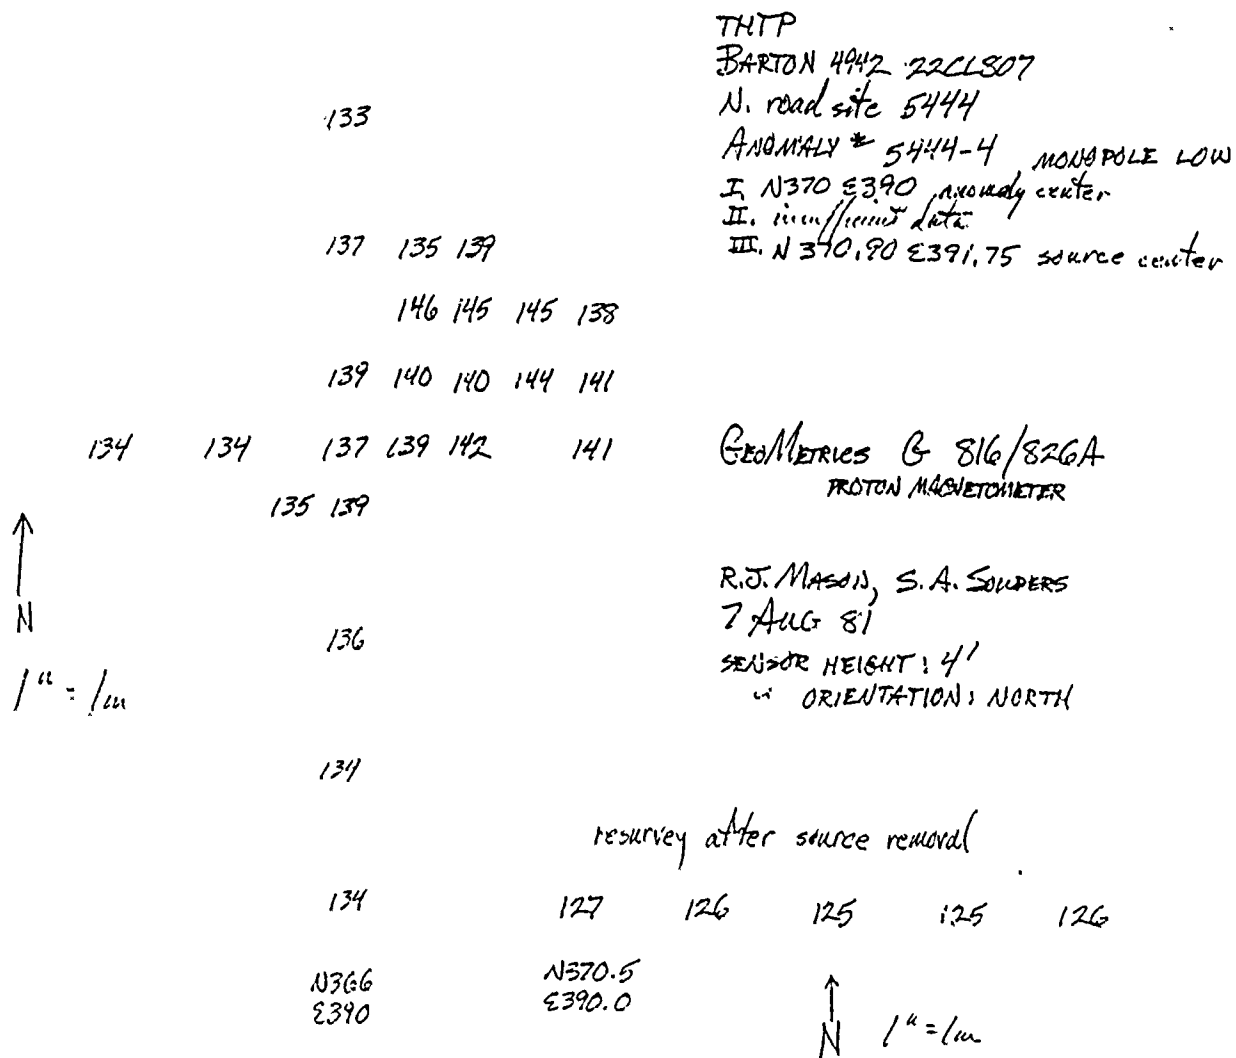 THTP
BARTON 4942 22CL807
N. road site 5444
ANOMALY # 5444-4, MONOPOLE LOW
I. N370 E390 anomaly center
II. insufficient data
III. N 370.90 E391.75 source center
133
137 135 139
146 145 145 138
139 140 140 144 141
134 134 137 139 142 141
135 139
136
134
134
N366
E390
N
1" = 1m
GEOMETRICS G 816/826A
PROTON MAGNETOMETER
R.J. MASON, S.A. SOUDERS
7 AUG 81
SENSOR HEIGHT: 4'
" ORIENTATION: NORTH
resurvey after source removal
127 126 125 125 126
N370.5
E390.0
N
1" = 1m